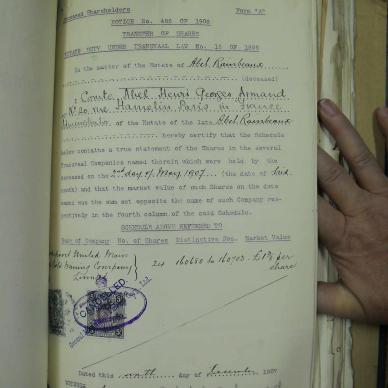 Deceased Shareholders Form "A"
NOTICE No. 486 OF 1902
TRANSFER OF SHARES
ESTATE DUTY UNDER TRANSVAAL LAW No. 18 OF 1899
In the matter of the Estate of Abel Rainbeaux
(deceased)
I Comte Abel Henri Georges Armand
of No. 20 rue Hamelin Paris in France
of the Estate of the late Abel Rainbeaux
hereby certify that the Schedule
below contains a true statement of the Shares in the several
Transvaal Companies named therein which were held by the
deceased on the 2nd day of May 1907 (the date of his
death) and that the market value of such Shares on the date
named was the sum set opposite the name of such Company res-
pectively in the Fourth column of the said Schedule.
SCHEDULE ABOVE REFERRED TO
Name of Company No. of Shares Distinctive Nos. Market Value
United Main
Gold Mining Company 24 160680 to 160703
share
CANCELLED
Dated this day of 1907
WITNESS